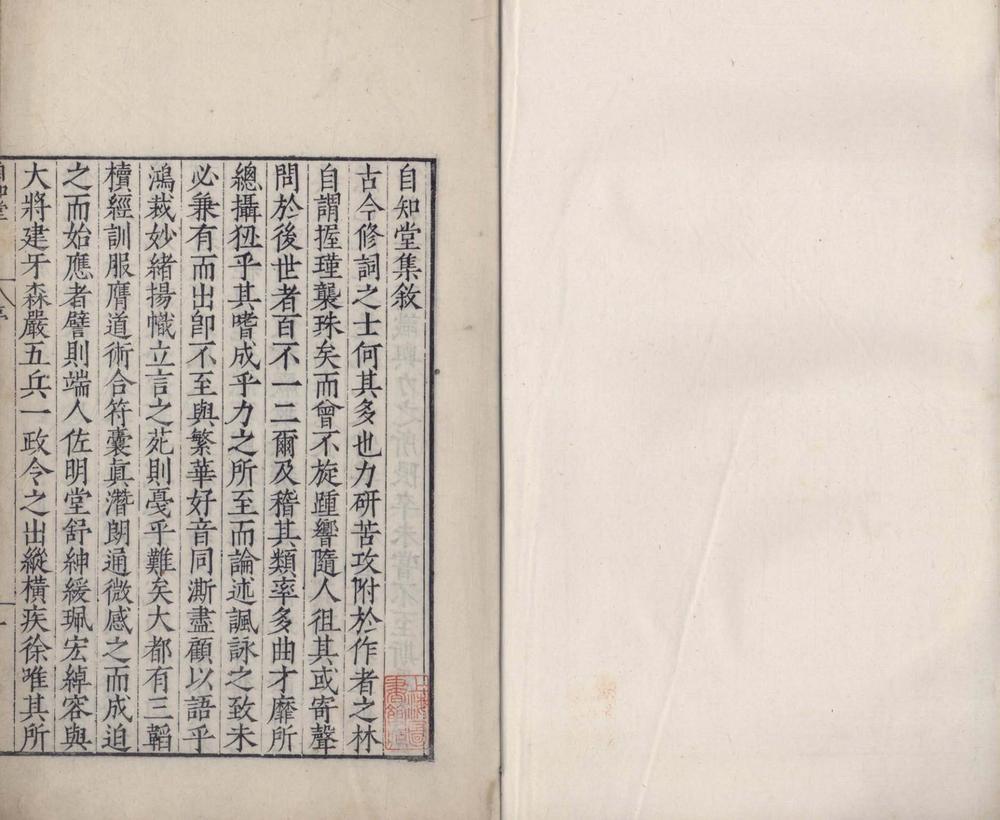 自知堂集敘
古今修詞之士何其多也力研苦攻附於作者之林
自謂握瑾襲珠矣而曾不旋踵響隨人徂其或寄聲
問於後世者百不一二爾及稽其類率多曲才靡所
總攝狃乎其嗜成乎力之所至而論述諷詠之致未
必兼有而出卽不至與繁華好音同澌盡顧以語乎
鴻裁妙緒揚幟立言之苑則戞乎難矣大都有三韜
櫝經訓服膺道術合符囊眞濳朗通微感之而成迫
之而始應者譬則端人佐明堂舒紳緩珮宏綽容與
大將建牙森嚴五兵一政令之出縱橫疾徐唯其所
自知堂